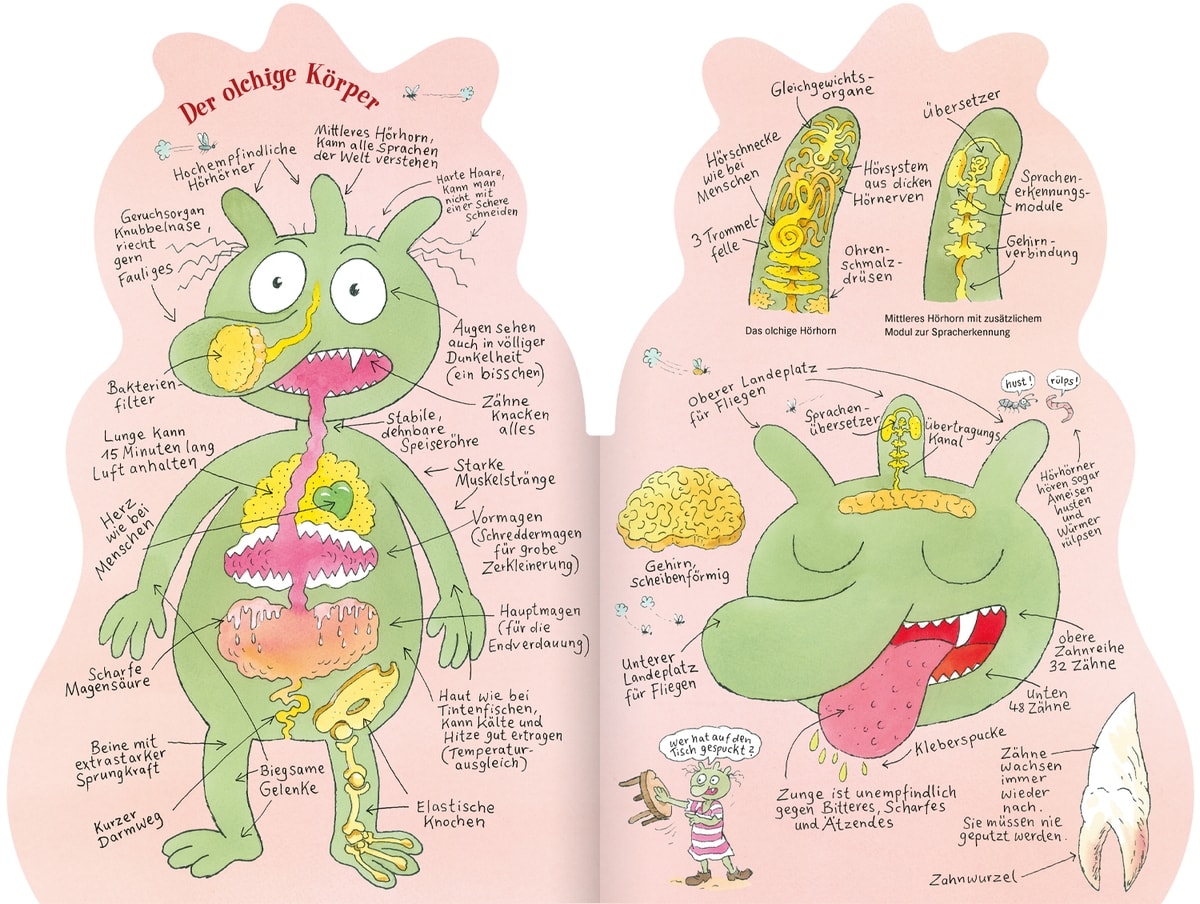 Der olchige Körper
Hochempfindliche
Hörhörner
Mittleres Hörhorn,
Kann alle Sprachen
der Welt verstehen
Harte Haare,
Kann man
nicht mit
einer Schere
Schneiden
Geruchsorgan
Knubbelnase,
riecht
gern
Fauliges
Augen sehen
auch in völliger
Dunkelheit
(ein bisschen)
Bakterien-
filter
Zähne
Knacken
alles
Stabile,
dehnbare
Speiseröhre
Lunge kann
15 Minuten lang
Luft anhalten
Starke
Muskelstränge
Herz
wie bei
Menschen
Vormagen
(Schreddermagen
für grobe
Zerkleinerung)
Hauptmagen
(für die
Endverdauung)
Scharfe
Magensäure
Haut wie bei
Tintenfischen,
Kann Kälte und
Hitze gut ertragen
(Temperatur-
ausgleich)
Beine mit
extrastarker
Sprungkraft
Biegsame
Gelenke
Kurzer
Darmweg
Elastische
Knochen
Gleichgewichts-
organe
Hörschnecke
wie bei
Menschen
Hörsystem
aus dicken
Hörnerven
3 Trommel-
felle
Ohren-
schmalz-
drüsen
Das olchige Hörhorn
Übersetzer
Sprachen-
erkennungs-
module
Gehirn-
verbindung
Mittleres Hörhorn mit zusätzlichem
Modul zur Spracherkennung
Oberer Landeplatz
für Fliegen
hust!
rülps!
Sprachen-
übersetzer
Übertragungs-
Kanal
Hörhörner
hören sogar
Ameisen
husten
und
Würmer
rülpsen
Gehirn,
scheibenförmig
Unterer
Landeplatz
für Fliegen
obere
Zahnreihe
32 Zähne
Unten
48 Zähne
Kleberspucke
wer hat auf den
Tisch gespuckt?
Zunge ist unempfindlich
gegen Bitteres, Scharfes
und Ätzendes
Zähne
wachsen
immer
wieder
nach.
Sie müssen nie
geputzt werden.
Zahnwurzel